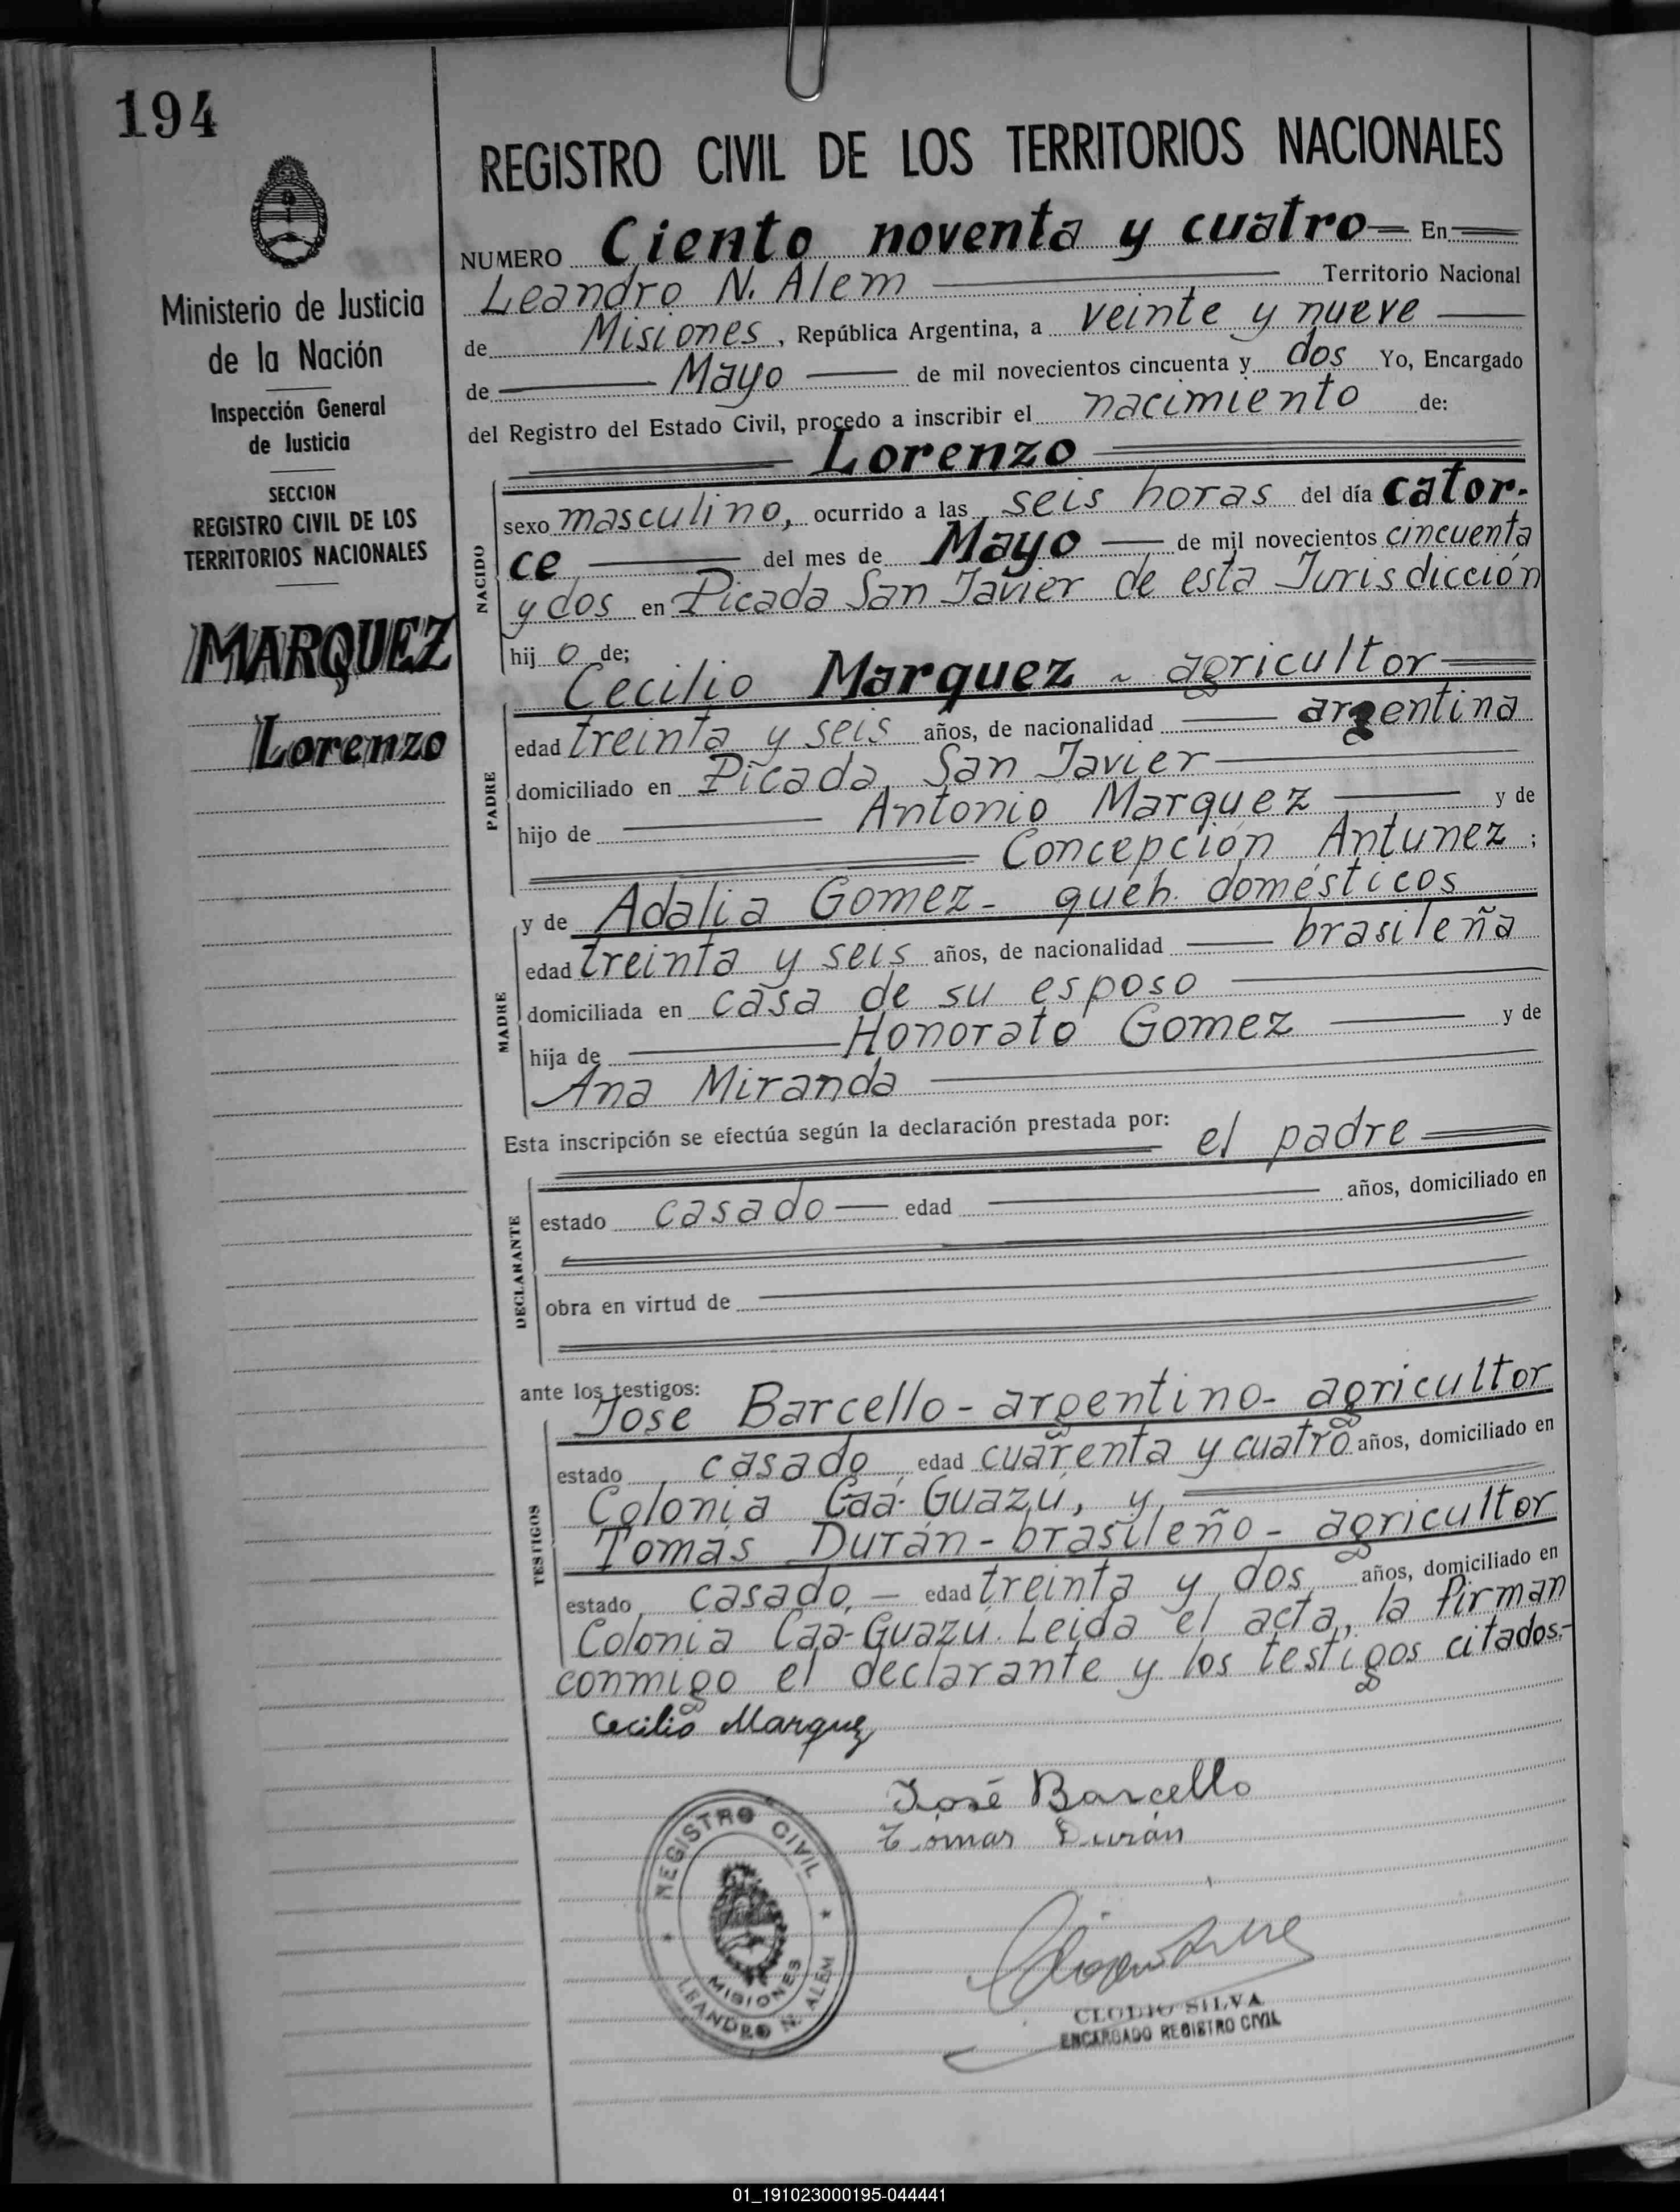 194
Ministerio de Justicia
de la Nación
Inspección General
de Justicia
SECCION
REGISTRO CIVIL DE LOS
TERRITORIOS NACIONALES
MARQUEZ
Lorenzo
REGISTRO CIVIL DE LOS TERRITORIOS NACIONALES
NUMERO Ciento noventa y cuatro En
Leandro N. Alem Territorio Nacional
de Misiones, República Argentina, a veinte y nueve
de Mayo de mil novecientos cincuenta y dos Yo, Encargado
del Registro del Estado Civil, procedo a inscribir el nacimiento de:
Lorenzo
NACIDO
sexo masculino, ocurrido a las seis horas del día cator-
ce del mes de Mayo de mil novecientos cincuenta
y dos en Picada San Javier de esta Jurisdicción
hij o de;
Cecilio Marquez ~ agricultor
PADRE
edad treinta y seis años, de nacionalidad argentina
domiciliado en Picada San Javier
hijo de Antonio Marquez y de
Concepción Antunez ;
y de Adalia Gomez - queh. domésticos
MADRE
edad treinta y seis años, de nacionalidad brasileña
domiciliada en casa de su esposo
hija de Honorato Gomez y de
Ana Miranda
Esta inscripción se efectúa según la declaración prestada por: el padre
DECLARANTE
estado casado edad años, domiciliado en
obra en virtud de
ante los testigos:
Jose Barcello - argentino - agricultor
TESTIGOS
estado casado edad cuarenta y cuatro años, domiciliado en
Colonia Caá-Guazú, y
Tomás Durán - brasileño - agricultor
estado casado, edad treinta y dos años, domiciliado en
Colonia Caa-Guazú. Leida el acta, la firman
conmigo el declarante y los testigos citados.-
Cecilio Marquez
José Barcello
Tomas Durán
REGISTRO CIVIL
MISIONES
LEANDRO N. ALEM
CLODIO SILVA
ENCARGADO REGISTRO CIVIL
01_191023000195-044441